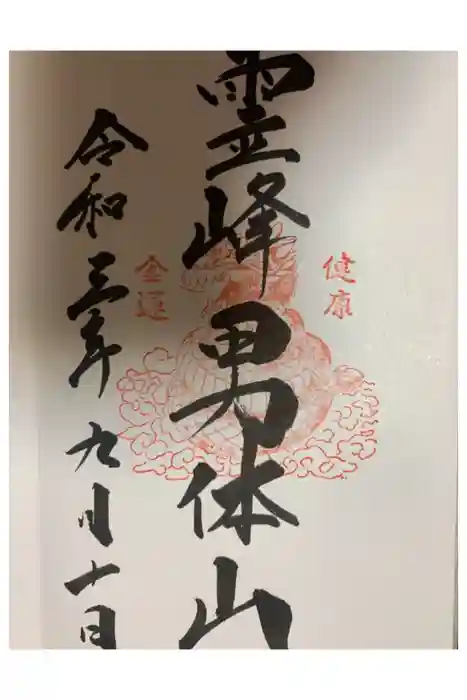 健康
霊峰男体山
金運
令和三年九月十日